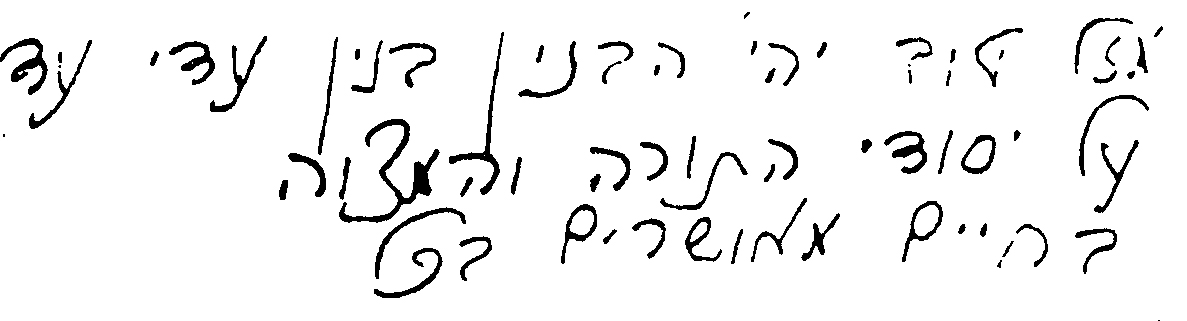 מזל טוב יהי' הבנין בנין עדי עד
על יסודי התורה והמצוה
בחיים מאושרים בכל